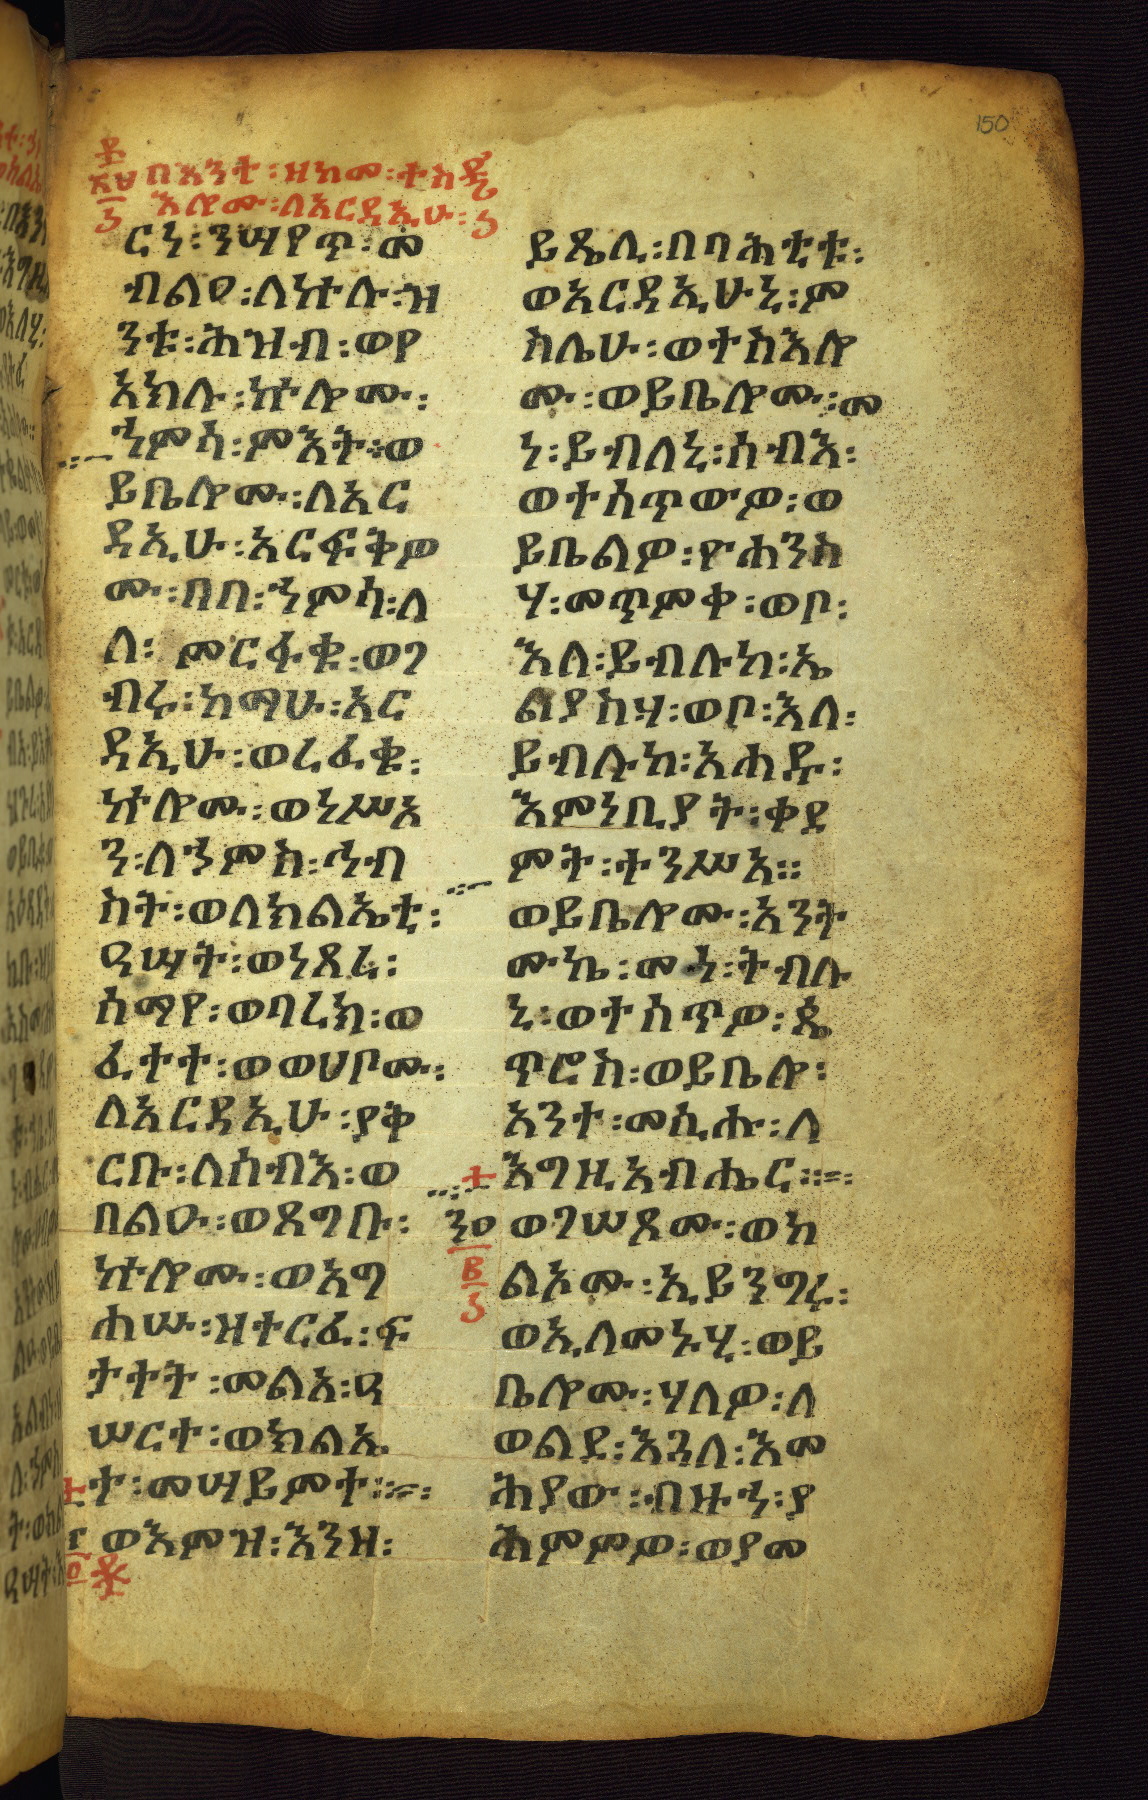 150
በእንተ፡ዘከመ፡ተስዷ
እሎሙ፡ለአርዳኢሁ፡
ርነ፡ንሣየጥ፡መ
ብልዐ፡ለኵሉ፡ዝ
ንቱ፡ሕዝብ፡ወየ
አክሉ፡ኵሎሙ፡
ኀምሳ፡ምእት፡ወ
ይቤሎሙ፡ለአር
ዳኢሁ፡አርፍቅዎ
ሙ፡በበ፡ኀምሳ፡ለ
ለ፡ምርፋቁ፡ወገ
ብሩ፡ከማሁ፡አር
ዳኢሁ፡ወረፈቁ፡
ኵሎሙ፡ወነሥአ
ን፡ለኀምስ፡ኅብ
ስት፡ወለክልኤቲ፡
ዓሣት፡ወነጸረ፡
ሰማየ፡ወባረከ፡ወ
ፈተተ፡ወወሀቦሙ፡
ለአርዳኢሁ፡ያቅ
ርቡ፡ለሰብእ፡ወ
በልዑ፡ወጸግቡ፡
ኵሎሙ፡ወአግ
ሐሡ፡ዝተርፈ፡ፍ
ታተት፡መልአ፡ዓ
ሠርተ፡ወክልኤ
ተ፡መሣይምተ፡፡
ወእምዝ፡እንዘ፡
ይጼሊ፡በባሕቲቱ፡
ወአርዳኢሁኒ፡ም
ስሌሁ፡ወተስእሎ
ሙ፡ወይቤሎሙ፡መ
ነ፡ይብለኒ፡ሰብእ፡
ወተሰጥውዎ፡ወ
ይቤልዎ፡ዮሐንስ
ሃ፡መጥምቀ፡ወቦ፡
እለ፡ይብሉከ፡ኤ
ልያስሃ፡ወቦ፡እለ፡
ይብሉከ፡አሐዱ፡
እምነቢያት፡ቀደ
ምት፡ተንሥአ፡፡
ወይቤሎሙ፡አንት
ሙኬ፡መነ፡ትብሉ
ኒ፡ወተሰጥዎ፡ጴ
ጥሮስ፡ወይቤሎ፡
አንተ፡መሲሑ፡ለ
እግዚአብሔር፡፡
ወገሠጾሙ፡ወከ
ልኦሙ፡ኢይንግሩ፡
ወኢለመኑሂ፡ወይ
ቤሎሙ፡ሃለዎ፡ለ
ወልደ፡እጓለ፡እመ
ሕያው፡ብዙኀ፡ያ
ሕምምዎ፡ወያመ